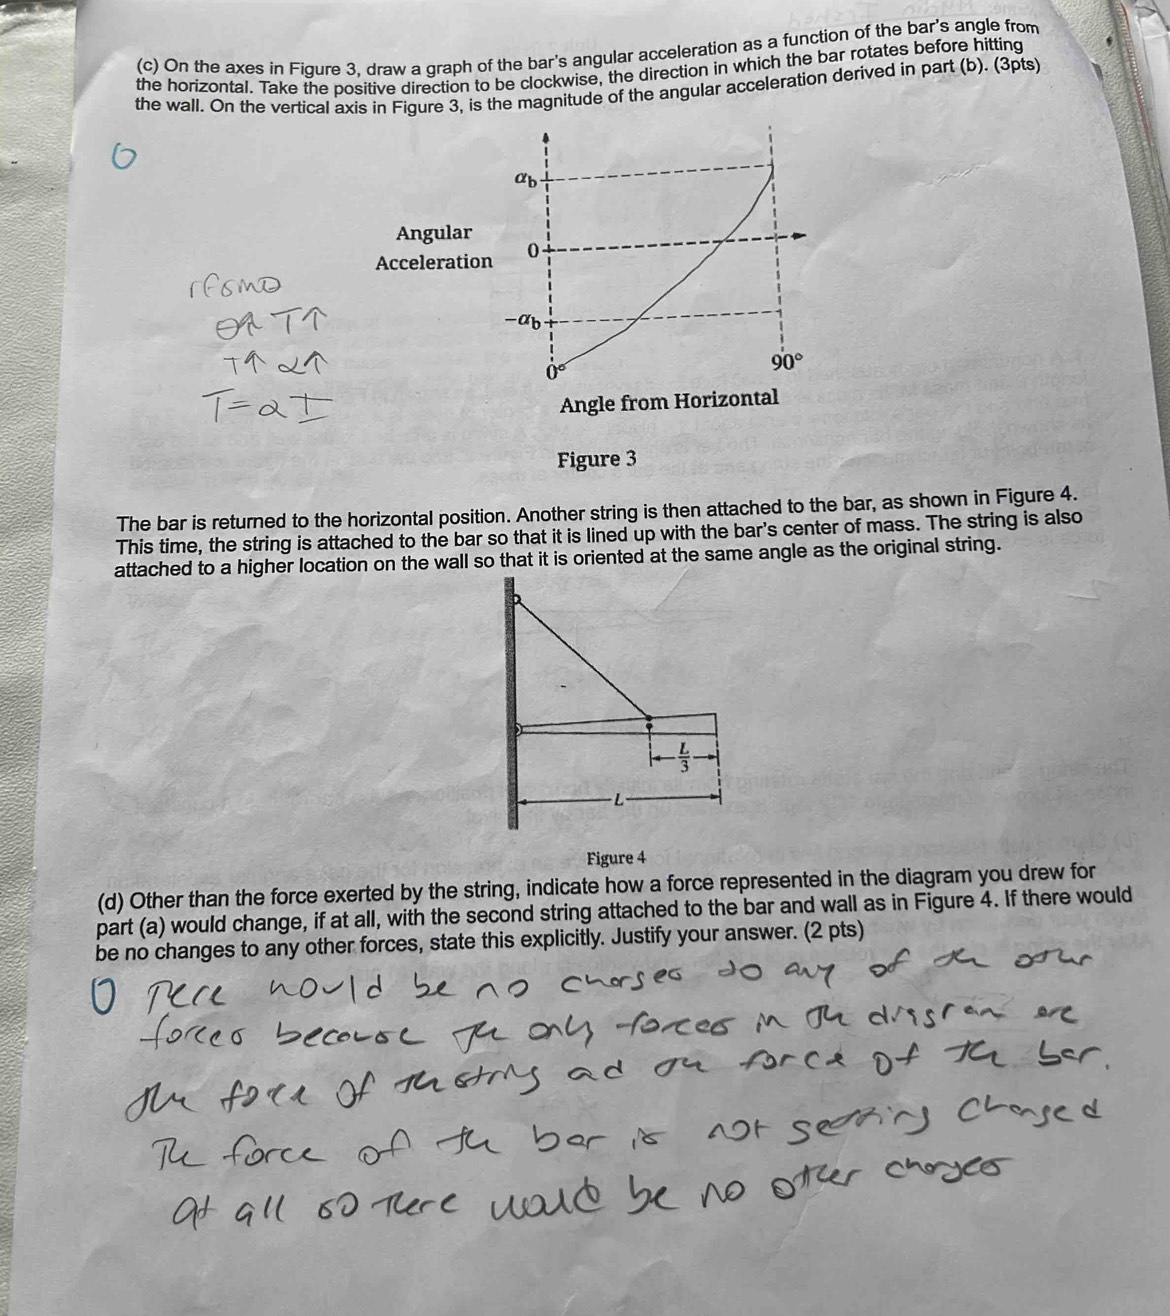 (c) On the axes in Figure 3, draw a graph of the bar's angular acceleration as a function of the bar's angle from
the horizontal. Take the positive direction to be clockwise, the direction in which the bar rotates before hitting
the wall. On the vertical axis in Figure 3, is the magnitude of the angular acceleration derived in part (b). (3pts)
0
αb
Angular
Acceleration
0
rFsinθ
θ↑ T↑
-αb
T↑ α↑
0°
90°
T=αI
Angle from Horizontal
Figure 3
The bar is returned to the horizontal position. Another string is then attached to the bar, as shown in Figure 4.
This time, the string is attached to the bar so that it is lined up with the bar's center of mass. The string is also
attached to a higher location on the wall so that it is oriented at the same angle as the original string.
L/3
L
Figure 4
(d) Other than the force exerted by the string, indicate how a force represented in the diagram you drew for
part (a) would change, if at all, with the second string attached to the bar and wall as in Figure 4. If there would
be no changes to any other forces, state this explicitly. Justify your answer. (2 pts)
0 There would be no changes to any of the other
forces because the only forces in the diagram are
the force of the string and the force of the bar.
The force of the bar is not getting changed
at all so there would be no other changes